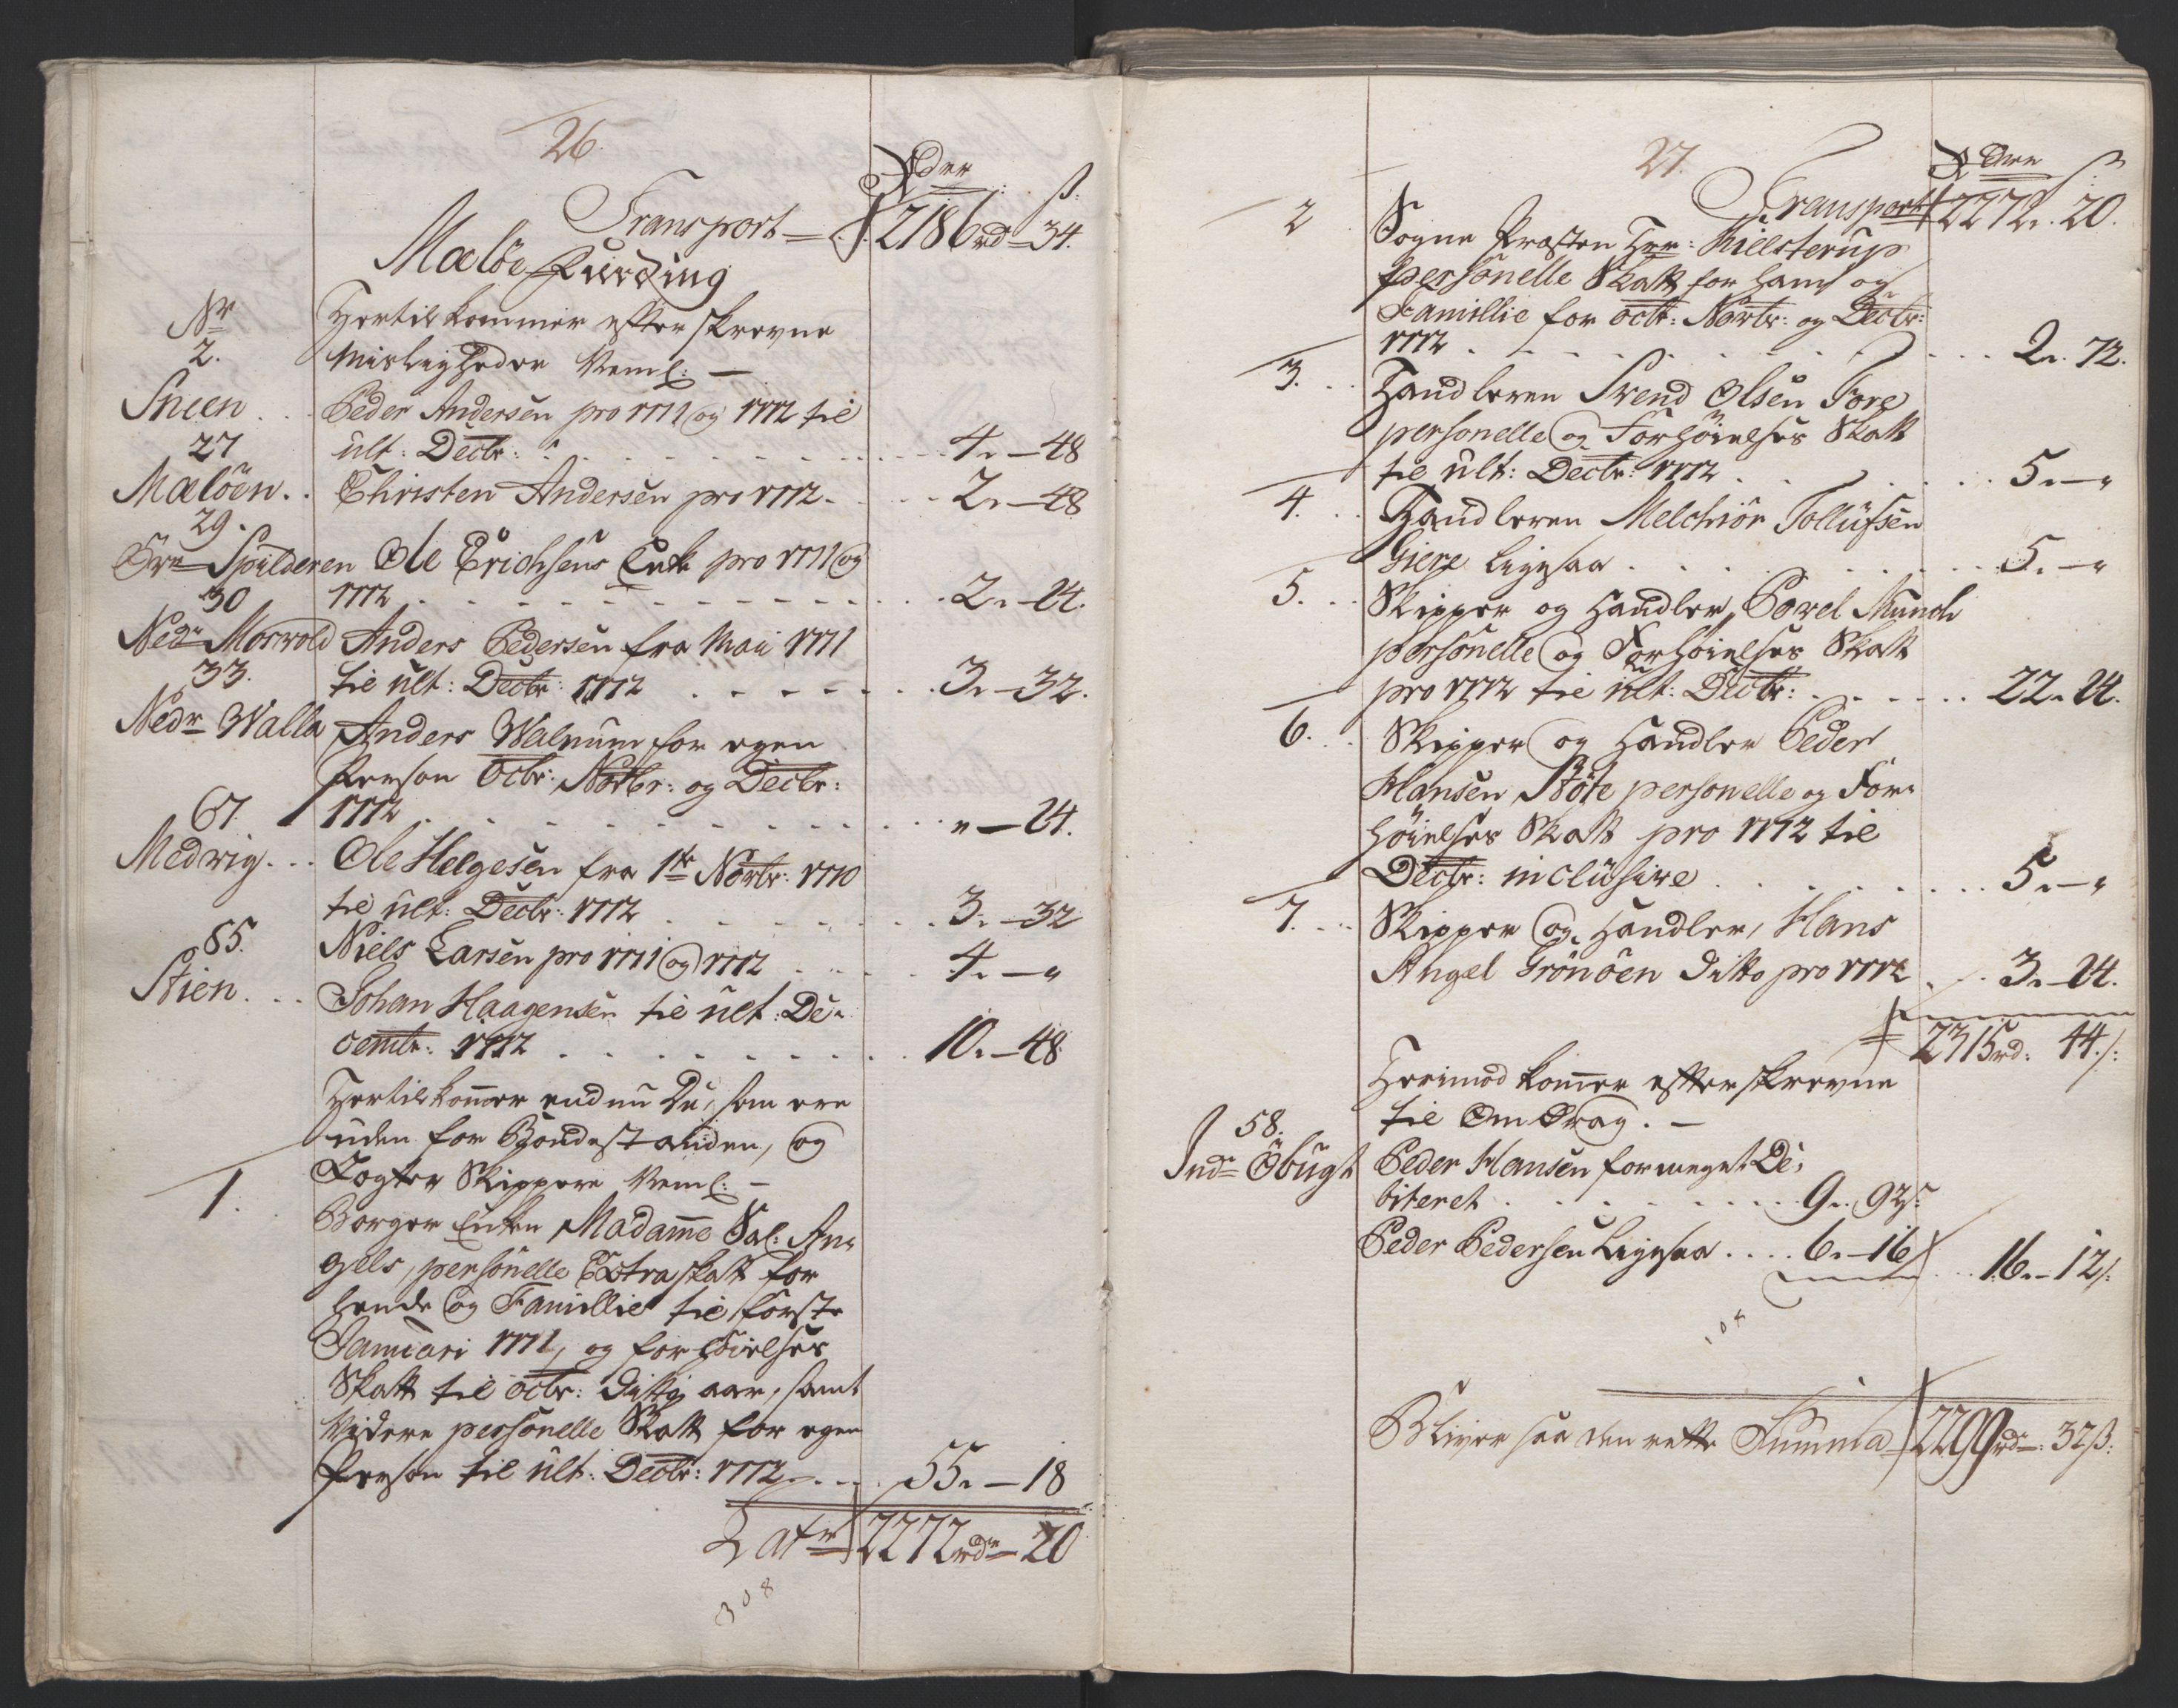 26.
Rdr ß:
Transport = 2186 rd – 34.
Maløe Fierding
Nr Hertil kommer efterskrevne
2. Misligheder Neml: –
Sneen . . Peder Andersen pro 1771 og 1772 til
27 ult: Decbr: . . . 4. – 48
Maløen . . Christen Andersen pro 1772 . . . 2. – 48
29.
Øvr Spilderen Ole Erichsens Enke pro 1771 og
30 1772 . . . 2. – 24.
Nedr Morvold Anders Pedersen fra Maii 1771
33. til ult: Decbr: 1772 . . . 3. – 32.
Nedr Walla Anders Walnum for egen
Person Octbr: Novbr: og Decbr:
67. 1772 . . . " – 24.
Medvig . . . Ole Helgesen fra 1te Novbr: 1770
til ult: Decbr: 1772 . . . 3. – 32
85. Niels Larsen pro 1771 og 1772 . . . 4. – "
Stien . . . Johan Haagensen til ult: De-
cembr: 1772 . . . 10. – 48
Hertil kommer endnu De, som ere
uden for Bondestanden, og
Jogter Skippere Neml: –
1. Borger Enken Madame Sal: An-
gels, personelle Extra skatt for
hende og Famillie til første
Januari 1771, og forhøielses
Skatt til octbr: ditto aar, samt
Videre personelle Skatt for egen
Person til ult: Decbr: 1772 . . . 55. – 18
Latr 2272 rdr – 20
308
27.
Rdr ß
Transport 2272. 20.
2 Sogne Præsten Hrr: Hielsterup
personelle Skatt for ham og
Famillie for octbr: Novbr: og Decbr:
1772 . . . 2. 72.
3. . . Handleren Svend Olsen Fore
personelle og Forhøielses Skatt
til ult: Decbr: 1772 . . . 5. – "
4. . . Handleren Melchior Tollufsen
Giere ligesaa . . . 5. – "
5. . . Skipper og Handler Povel Munch
personelle og Forhøielses Skatt
pro 1772 til ult: Decbr: . . . 22. 24.
6. . . Skipper og Handler Peder
Hansen Støte personelle og For-
høielses Skatt pro 1772 til
Decbr: inclusive . . . 5. – "
7. . . Skipper og Handler, Hans
Angel Grønøen ditto pro 1772 . . 3. – 24.
2315 rd: 44 ß:
Herimod kommer efterskrevne
til Omdrag. –
58.
Indr Øbugt Peder Hansen formeget De-
biteret . . . 9. 92 ß
Peder Pedersen ligesaa . . . . 6. – 16 . . . 16. – 12 ß:
108
Bliver saa den rette Summa 2299 rdr: 32 ß: